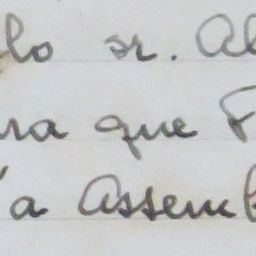 lo sr. Al
ra que F
a Assemb